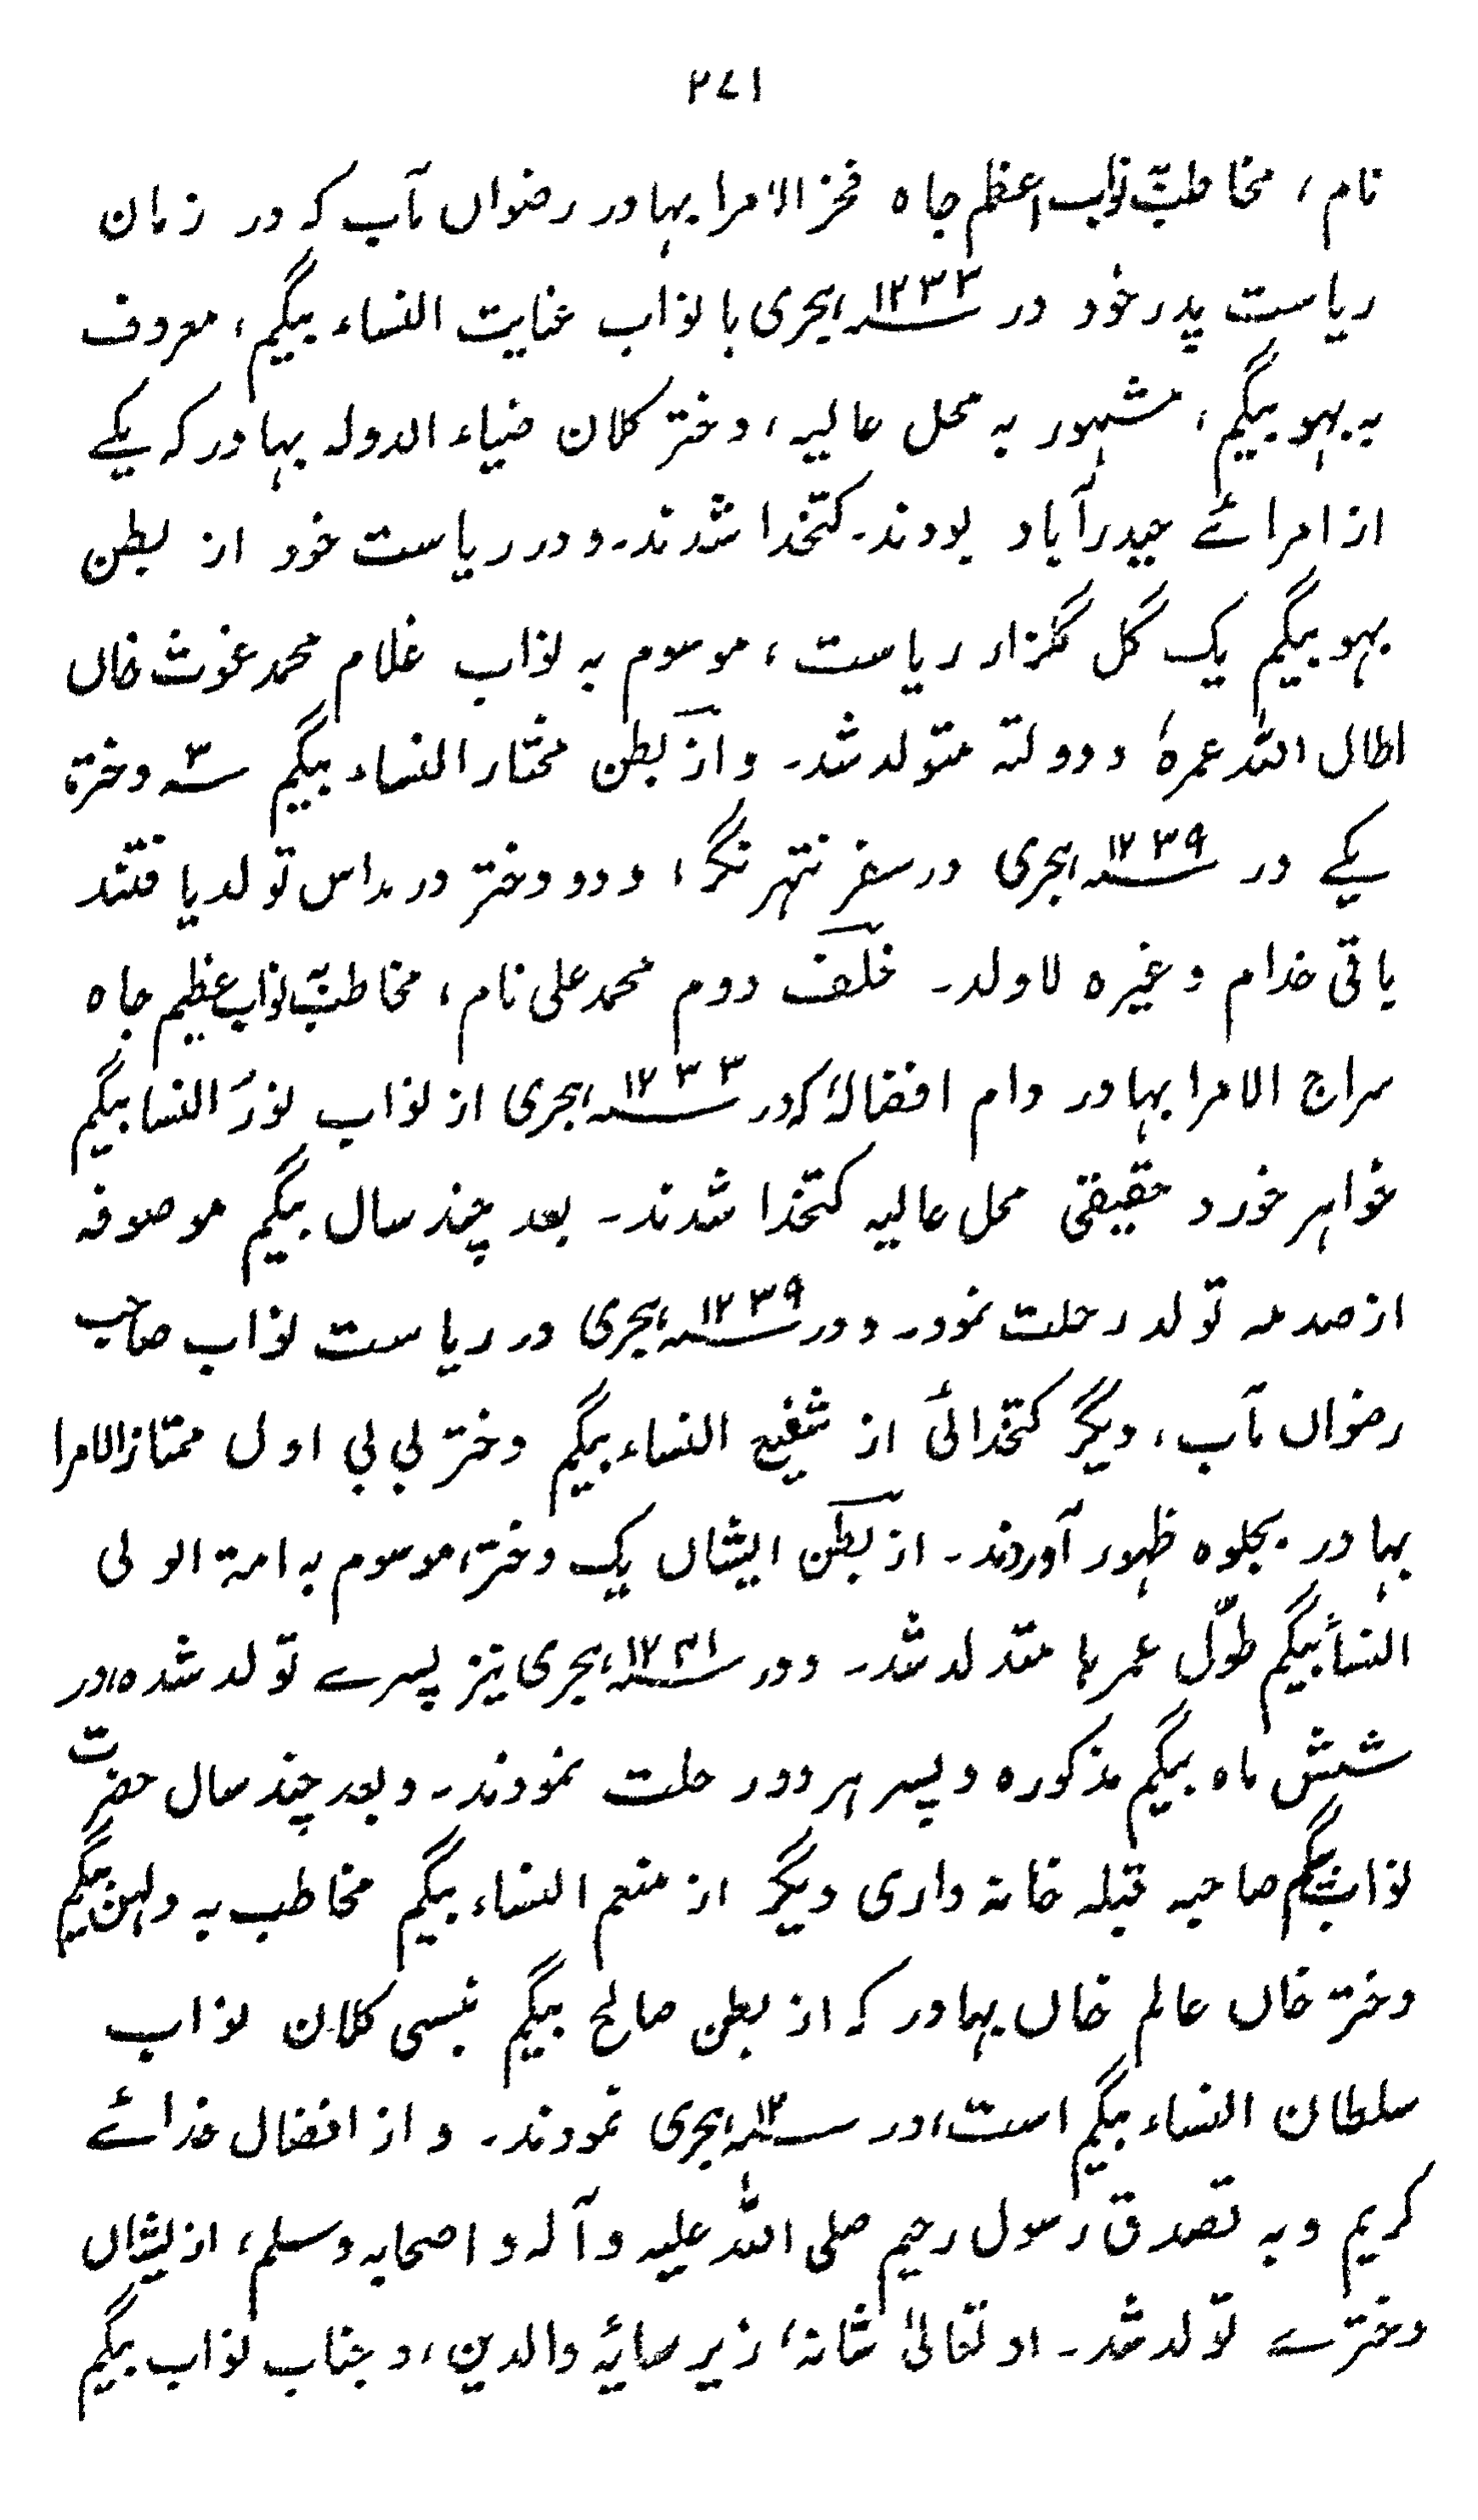 ۲۷۱
نام، مخاطب بہ نواب اعظم جاہ فخر الامرا بہادر رضواں مآب کہ در زمان
ریاست پدر خود در ۱۲۳۳ ہجری با نواب عنایت النساء بیگم، معروف
بہ بہو بیگم، مشہور بہ محل عالیہ، دختر کلان ضیاء الدولہ بہادر کہ یکے
از امرائے حیدرآباد بودند۔ کتخدا شدند۔ و در ریاست خود از بطن
بہو بیگم یک گل گلزار ریاست، موسوم بہ نواب غلام محمد غوث خاں
اطال اللہ عمرہٗ و دولتہ متولد شد۔ و از بطن مختار النساء بیگم سہ دختر،
یکے در ۱۲۳۹ ہجری در سفر نتہر نگر، و دو دختر در مداس تولد یافتند
باقی خدام و غیرہ لاولد۔ خلف دوم محمد علی نام، مخاطب بہ نواب عظیم جاہ
سراج الامرا بہادر دام افضالہٗ کہ در ۱۲۳۳ ہجری از نواب نورُ النسا بیگم
خواہر خورد حقیقی محل عالیہ کتخدا شدند۔ بعد چند سال بیگم موصوفہ
از صدمہ تولد رحلت نمود۔ و در ۱۲۳۹ ہجری در ریاست نواب صاحب
رضواں مآب، دیگر کتخدائی از شفیع النساء بیگم دختر بی بی اول ممتاز الامرا
بہادر بجلوہ ظہور آوردند۔ از بطن ایشاں یک دختر، موسوم بہ امۃ الولی
النسأ بیگم طوّل عمرہا متولد شد۔ و در ۱۲۴۱ ہجری نیز پسرے تولد شدہ، در
شش ماہ بیگم مذکورہ و پسر ہر دو رحلت نمودند۔ و بعد چند سال حضرت
نواب بیگم صاحبہ قبلہ خانہ داری دیگر از منعم النساء بیگم مخاطب بہ دلہن بیگم
دختر خاں عالم خاں بہادر کہ از بطن صالح بیگم نبسی کلان نواب
سلطان النساء بیگم است، در ۱۲ ہجری نمودند۔ و از افضال خدائے
کریم و بہ تصدق رسول رحیم صلی اللہ علیہ و آلہ و اصحابہ وسلم، از یشاں
دخترے تولد شد۔ او تعالیٰ شانہٗ زیر سایۂ والدین، و جناب نواب بیگم